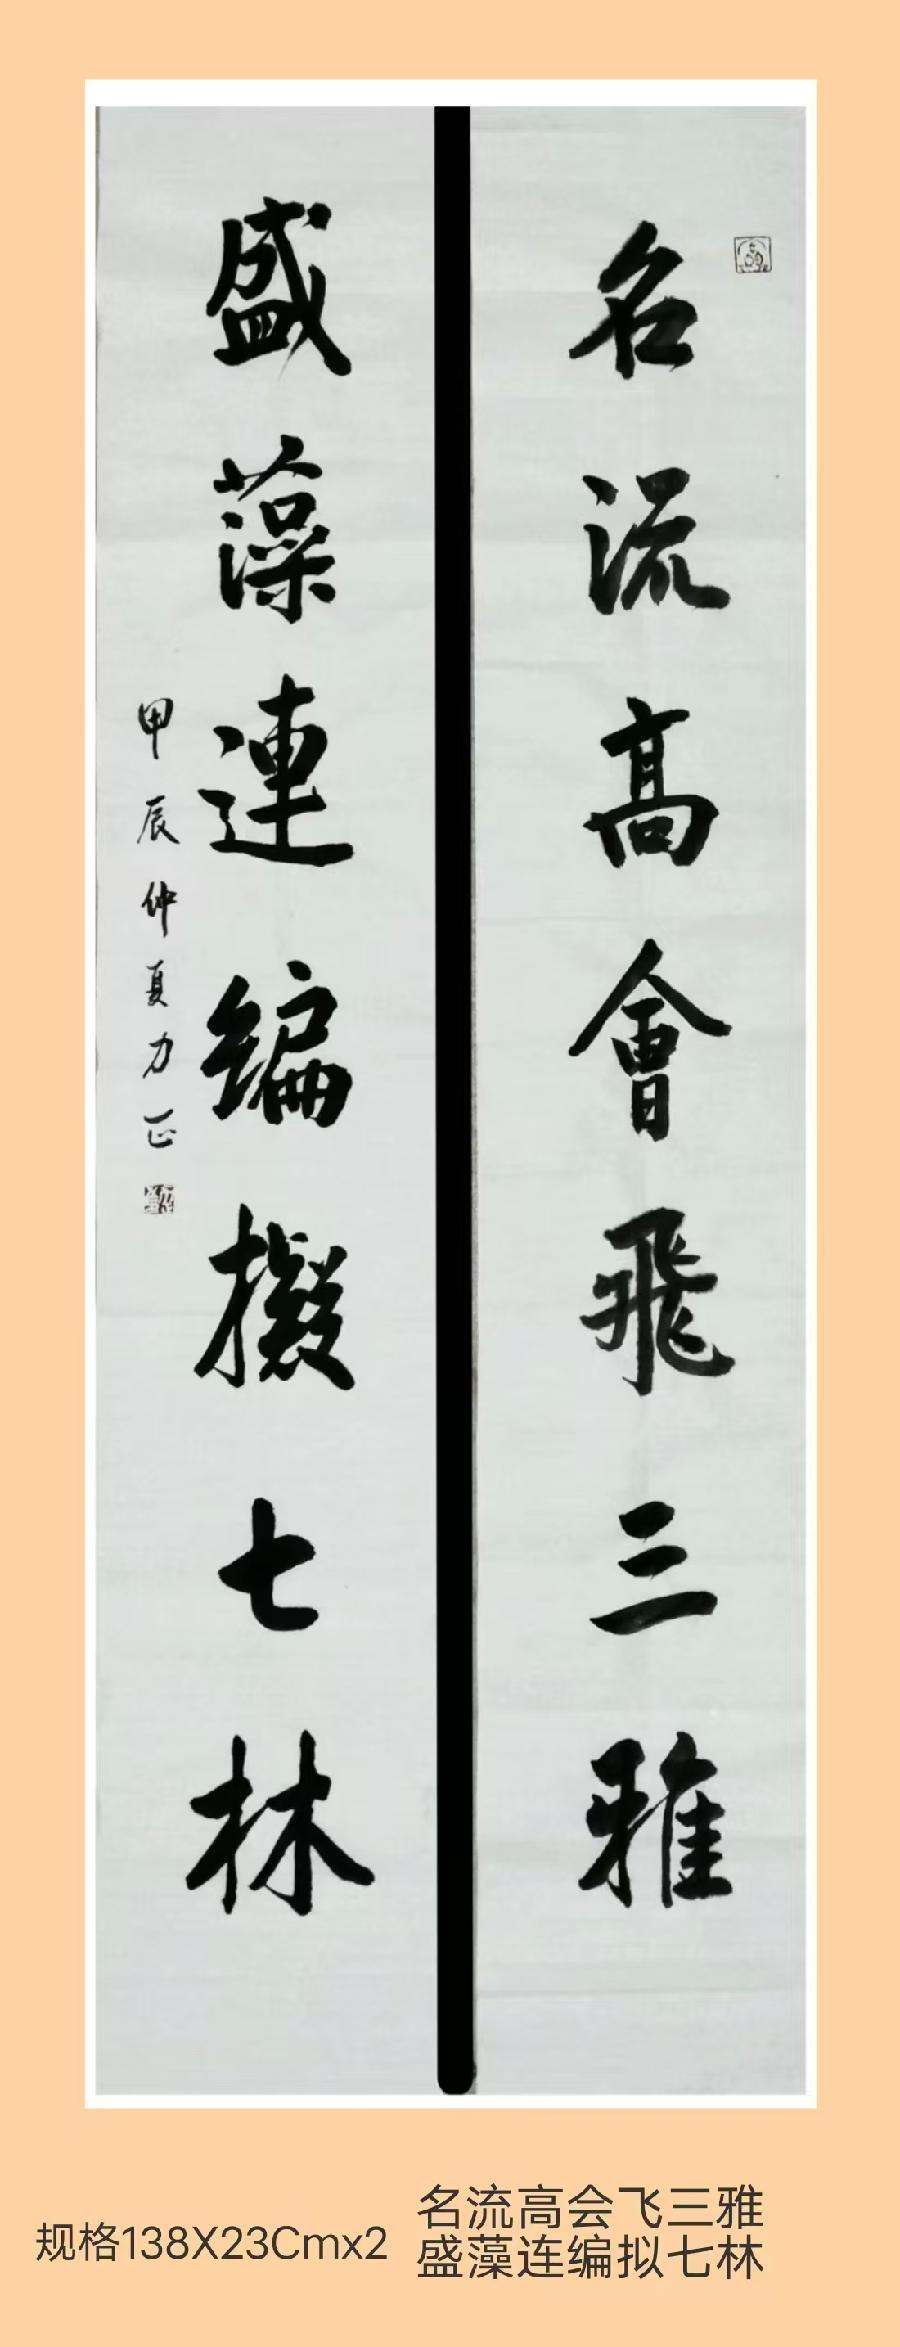 名流高會飛三雅
盛藻連编擬七林
甲辰仲夏力正
规格138X23Cmx2
名流高会飞三雅
盛藻连编拟七林